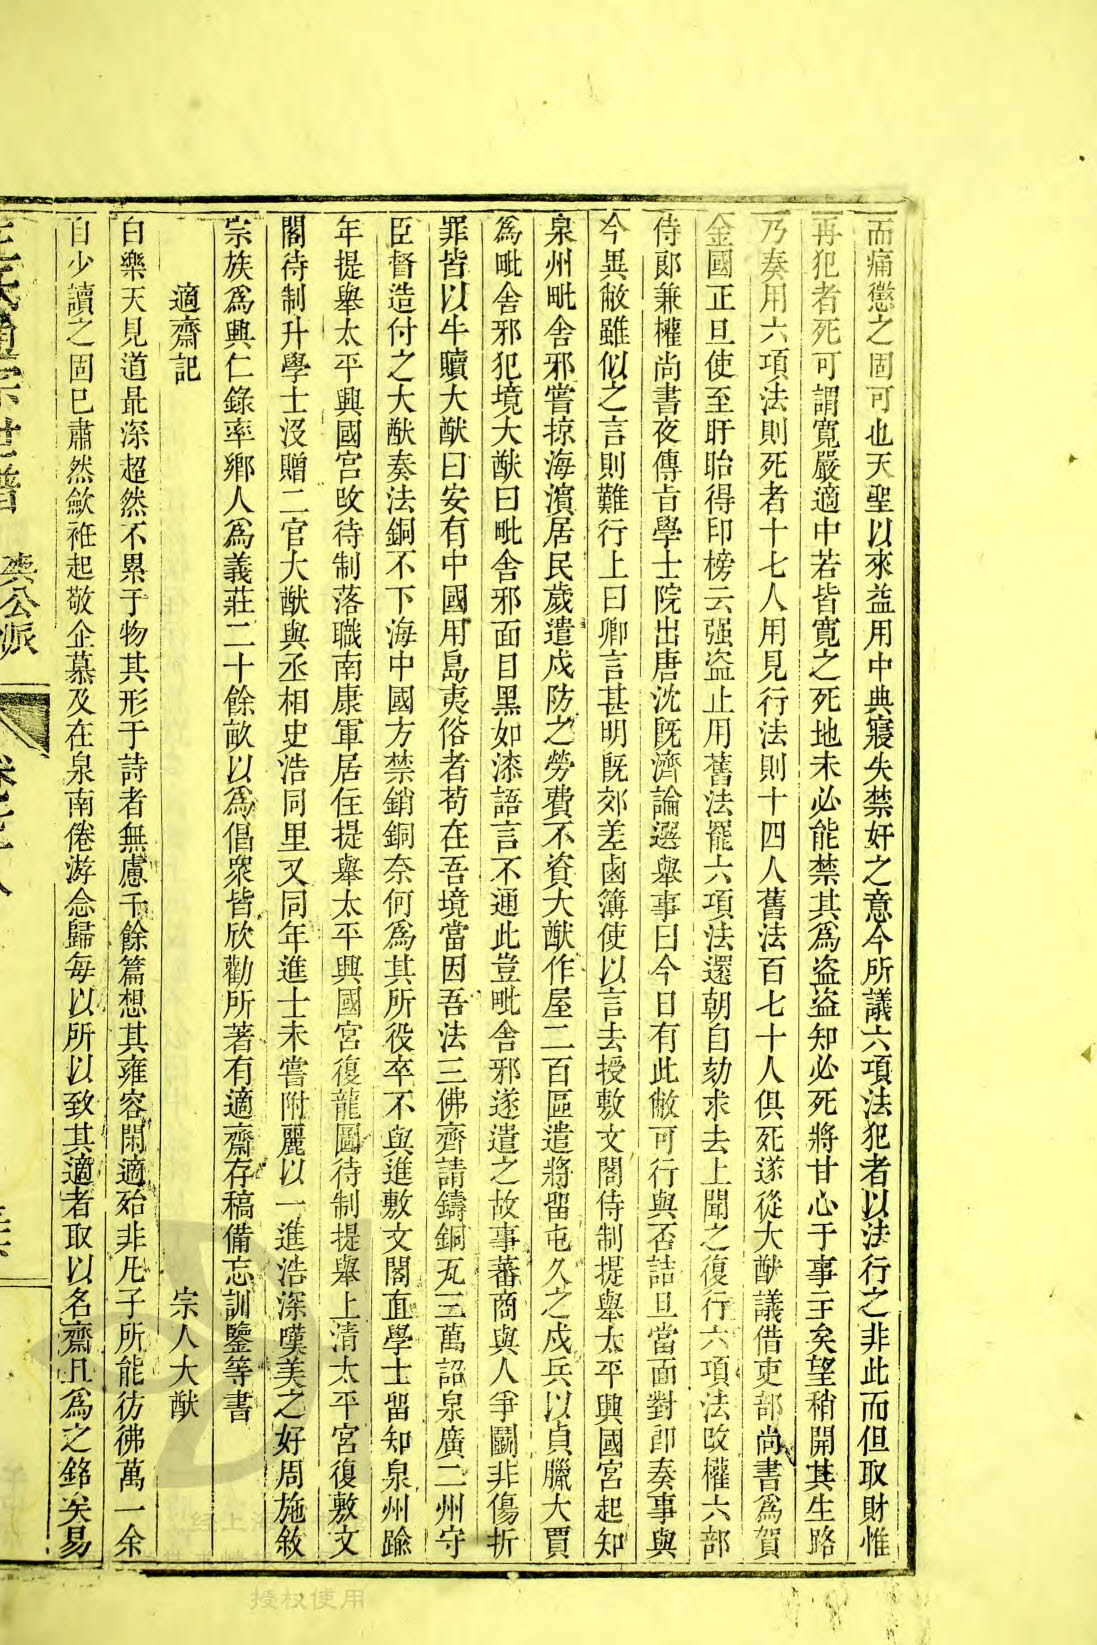 而痛懲之固可也天聖以來益用中典寢失禁奸之意今所議六項法犯者以法行之非此而但取財惟
再犯者死可謂寬嚴適中若皆寬之死地未必能禁其爲盗盗知必死將甘心于事主矣望稍開其生路
乃奏用六項法則死者十七人用見行法則十四人舊法百七十人俱死遂從大猷議借吏部尚書爲賀
金國正旦使至盱眙得印榜云强盗止用舊法罷六項法還朝自劾求去上聞之復行六項法改權六部
侍郎兼權尚書夜傳旨學士院出唐沈既濟論選舉事曰今日有此敝可行與否詰旦當面對即奏事與
今異敝雖似之言則難行上曰卿言甚明既郊差鹵簿使以言去授敷文閣侍制提舉太平興國宮起知
泉州毗舍邪嘗掠海濱居民歲遣戍防之勞費不資大猷作屋二百區遣將留屯久之戍兵以貞臘大賈
爲毗舍邪犯境大猷曰毗舍邪面目黑如漆語言不通此豈毗舍邪遂遣之故事蕃商與人爭鬭非傷折
罪皆以牛贖大猷曰安有中國用島夷俗者苟在吾境當因吾法三佛齊請鑄銅瓦三萬詔泉廣二州守
臣督造付之大猷奏法銅不下海中國方禁銷銅奈何爲其所役卒不與進敷文閣直學士留知泉州踰
年提舉太平興國宮改待制落職南康軍居住提舉太平興國宮復龍圖待制提舉上清太平宮復敷文
閣待制升學士沒贈二官大猷與丞相史浩同里又同年進士未嘗附麗以一進浩深嘆美之好周施敘
宗族爲興仁錄率鄉人爲義莊二十餘畝以爲倡衆皆欣勸所著有適齋存稿備忘訓鑒等書
適齋記
宗人大猷
白樂天見道最深超然不累于物其形于詩者無慮千餘篇想其雍容閑適殆非凡子所能彷彿萬一余
自少讀之固已肅然歛袵起敬企慕及在泉南倦游念歸每以所以致其適者取以名齋且爲之銘矣易
汪氏通宗世譜
奭公派
授权使用